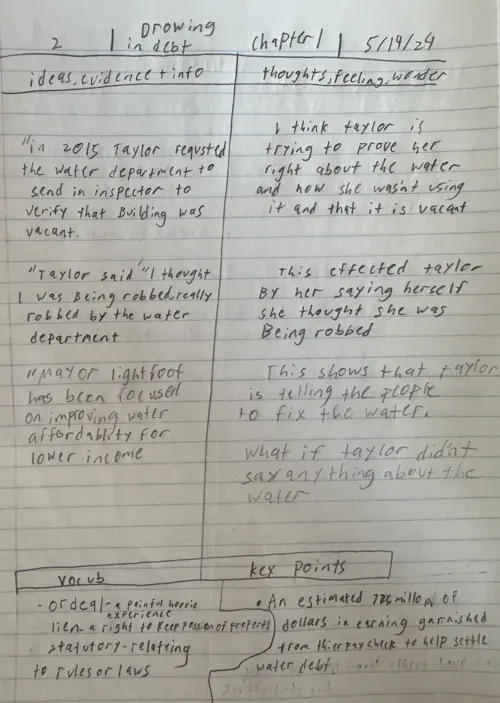 2 | Drowing in debt chapter 1 | 5/19/24
ideas, evidence + info
"in 2015 Taylor requsted
the water department to
send in inspector to
verify that Building was
vacant.
"Taylor said "I thought
I was Being robbed, really
robbed by the water
department
"Mayor lightfoot
has been focused
on improving water
affordablity for
lower income
thoughts, feeling, wonder
I think taylor is
trying to prove her
right about the water
and how she wasn't using
it and that it is vacant
This effected taylor
By her saying herself
she thought she was
Being robbed
This shows that taylor
is telling the people
to fix the water.
What if taylor didn't
say anything about the
water
vocub
- ordeal - a painful horric
experience
lien - a right to keep possion of property
. statutory - relating
to rules or laws
key points
• An estimated millon of
dollars in earning garnished
from thier paycheck to help settle
water debt and others have